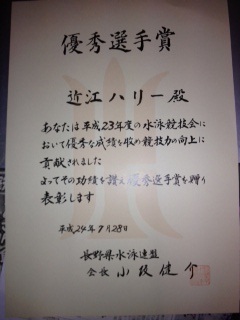 優秀選手賞
近江ハリー殿
あなたは平成23年度の水泳競技会に
おいて優秀な成績を収め競技力の向上に
貢献されました
よってその功績を讃え優秀選手賞を贈り
表彰します
平成24年7月28日
長野県水泳連盟
会長 小坂健介